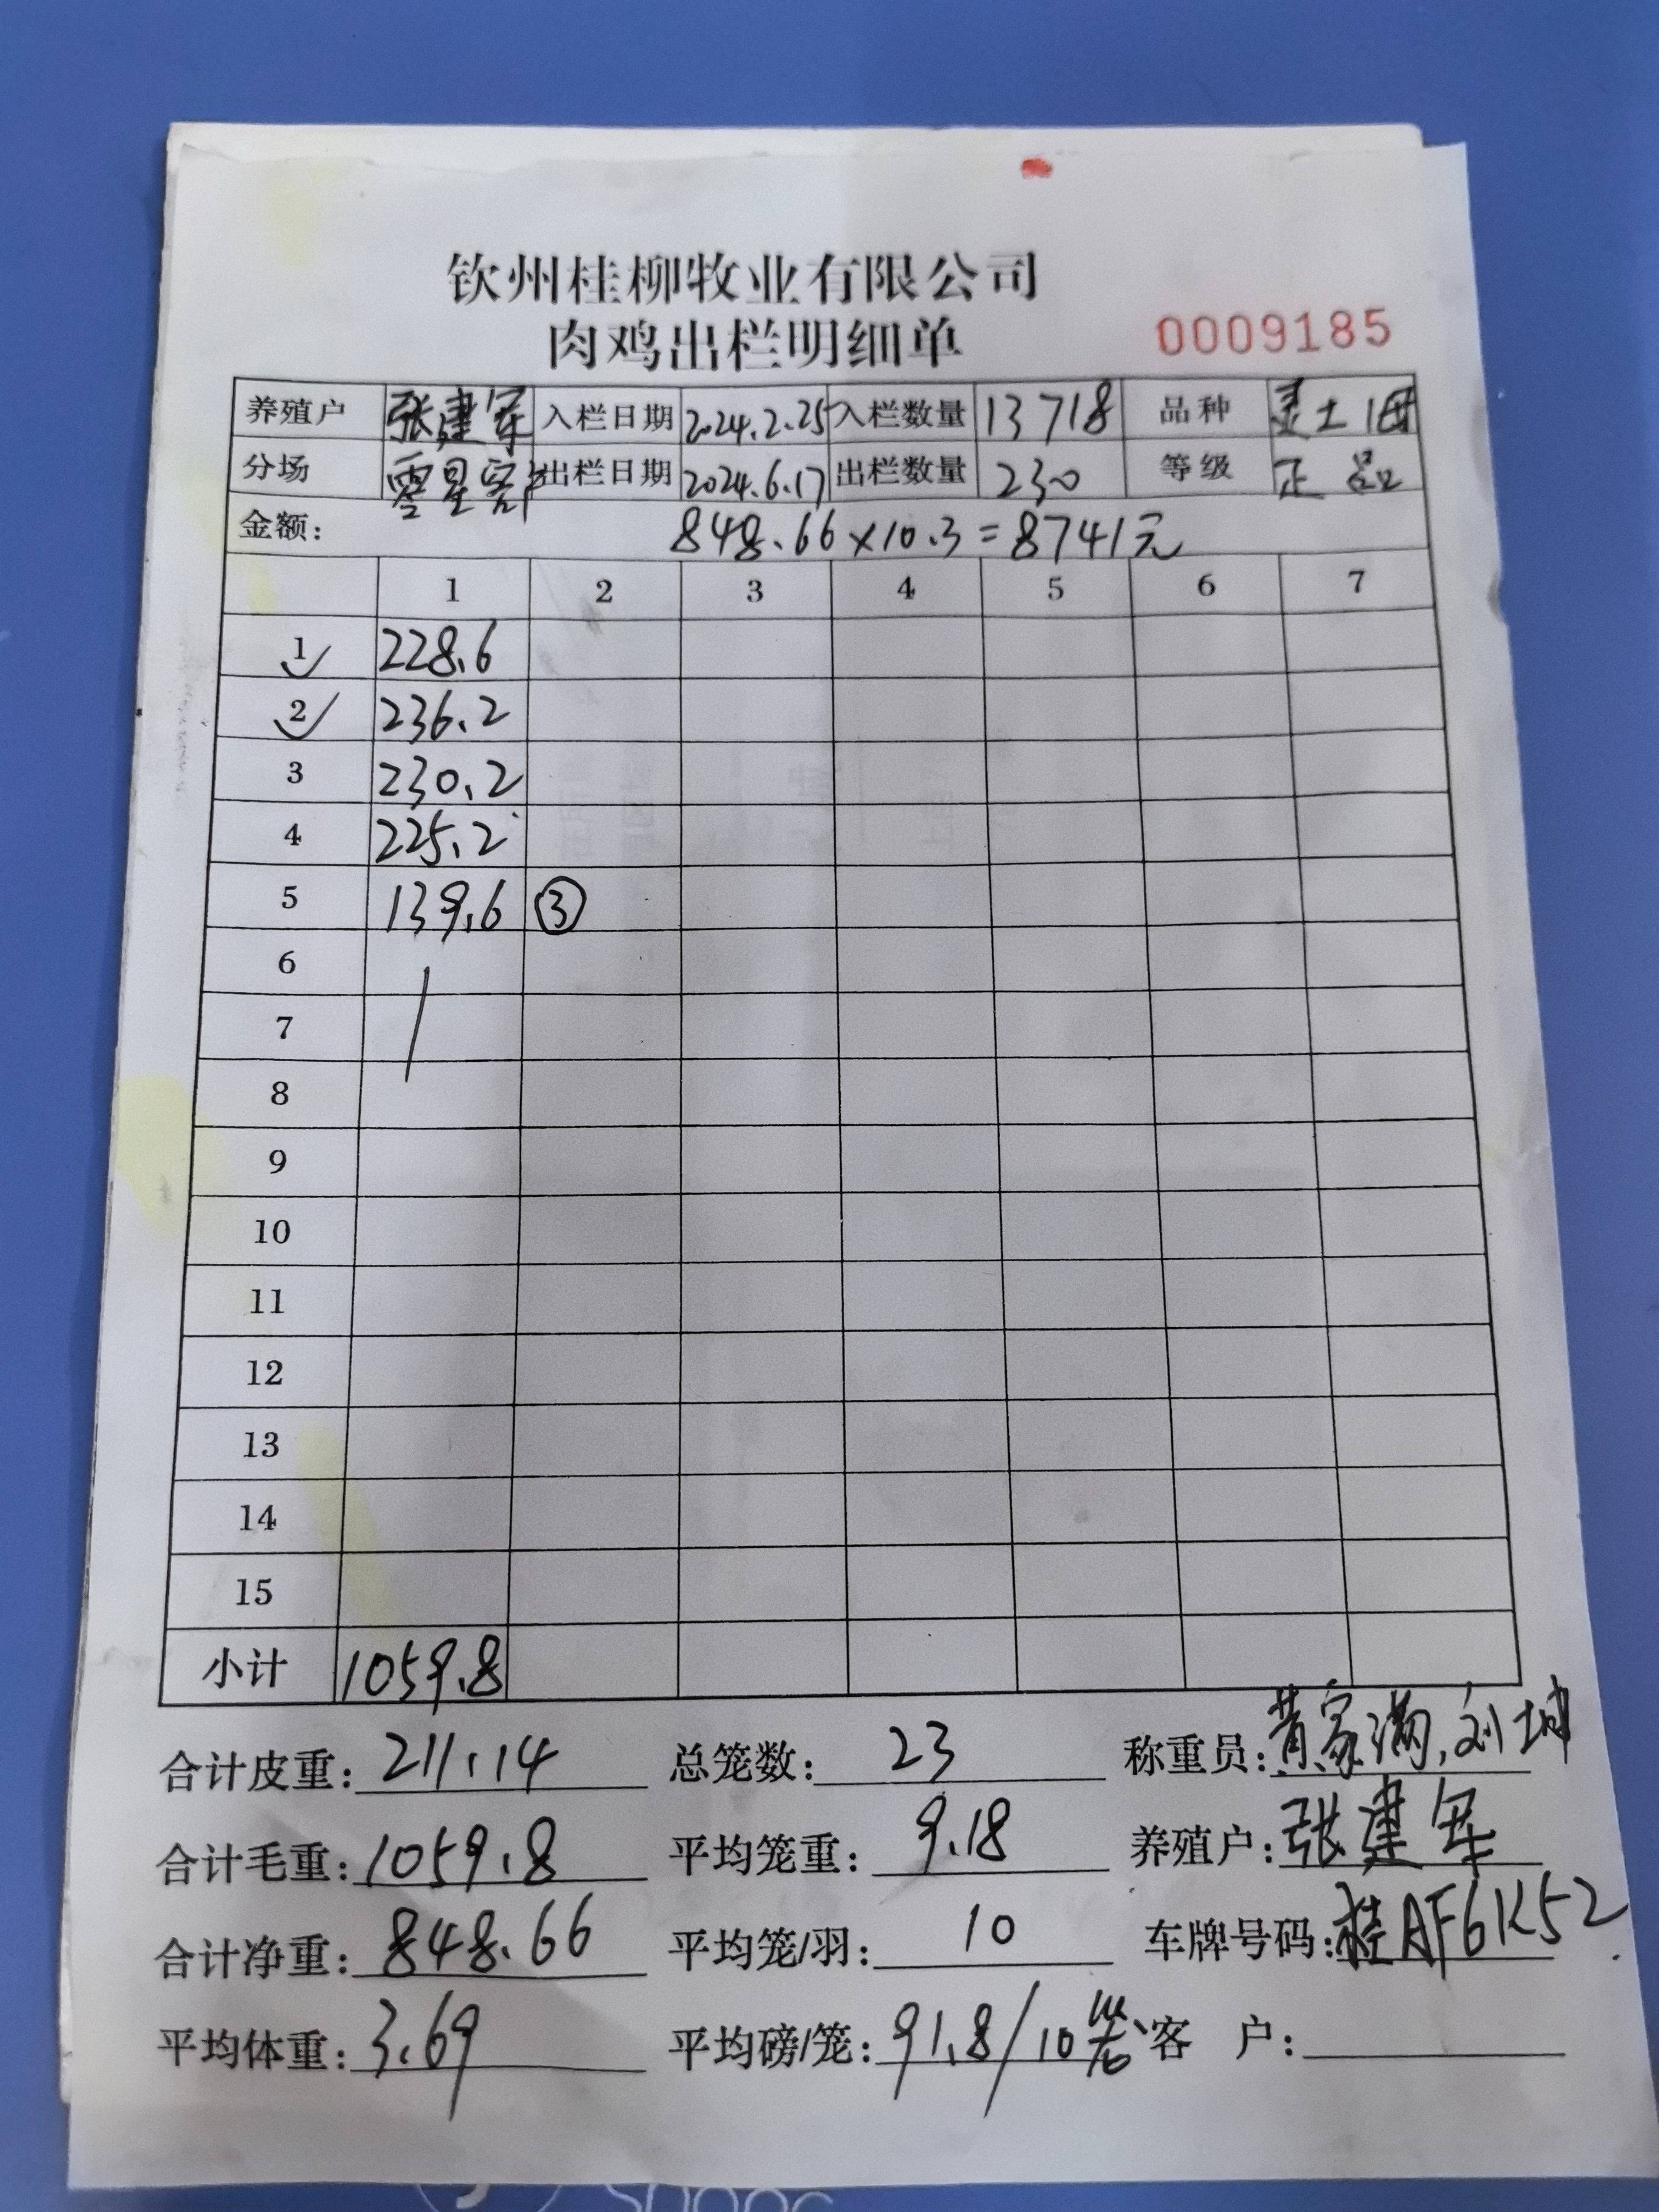 钦州桂柳牧业有限公司
肉鸡出栏明细单 0009185
养殖户 张建军 入栏日期 2024.2.25 入栏数量 13718 品种 灵土1母
分场 零星客户 出栏日期 2024.6.17 出栏数量 230 等级 正品
金额: 848.66×10.3=8741元
1 2 3 4 5 6 7
1 228.6
2 236.2
3 230.2
4 225.2
5 139.6 ③
6
7
8
9
10
11
12
13
14
15
小计 1059.8
合计皮重: 211.14 总笼数: 23 称重员: 黄家满,刘坤
合计毛重: 1059.8 平均笼重: 9.18 养殖户: 张建军
合计净重: 848.66 平均笼/羽: 10 车牌号码: 桂AF6K52
平均体重: 3.69 平均磅/笼: 91.8/10笼 客 户: